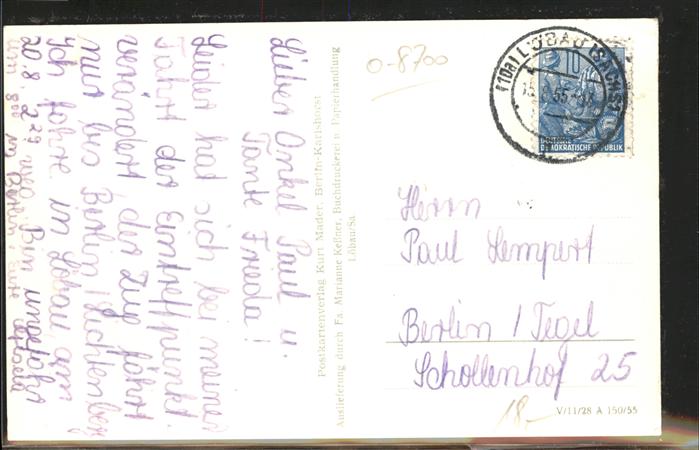 Lieber Onkel Paul u.
Tante Frieda!
Leider hat sich bei meiner
Fahrt der Eintreffpunkt
verändert der Zug fährt
nur bis Berlin/Lichtenberg
Ich fahre in Löbau am
20.8. 2 29 weg Bin ungefähr
um 8 00 in Berlin. Eure
Postkartenverlag Kurt Mader, Berlin-Karlshorst
Auslieferung durch Fa. Marianne Keßner, Buchdruckerei u. Papierhandlung
Löbau/Sa.
0-8700
(10a) LÖBAU (SACHS)
10
DEUTSCHE
DEMOKRATISCHE REPUBLIK
Herrn
Paul Lempert
Berlin / Tegel
Schollenhof 25
18.-
V/11/28 A 150/55